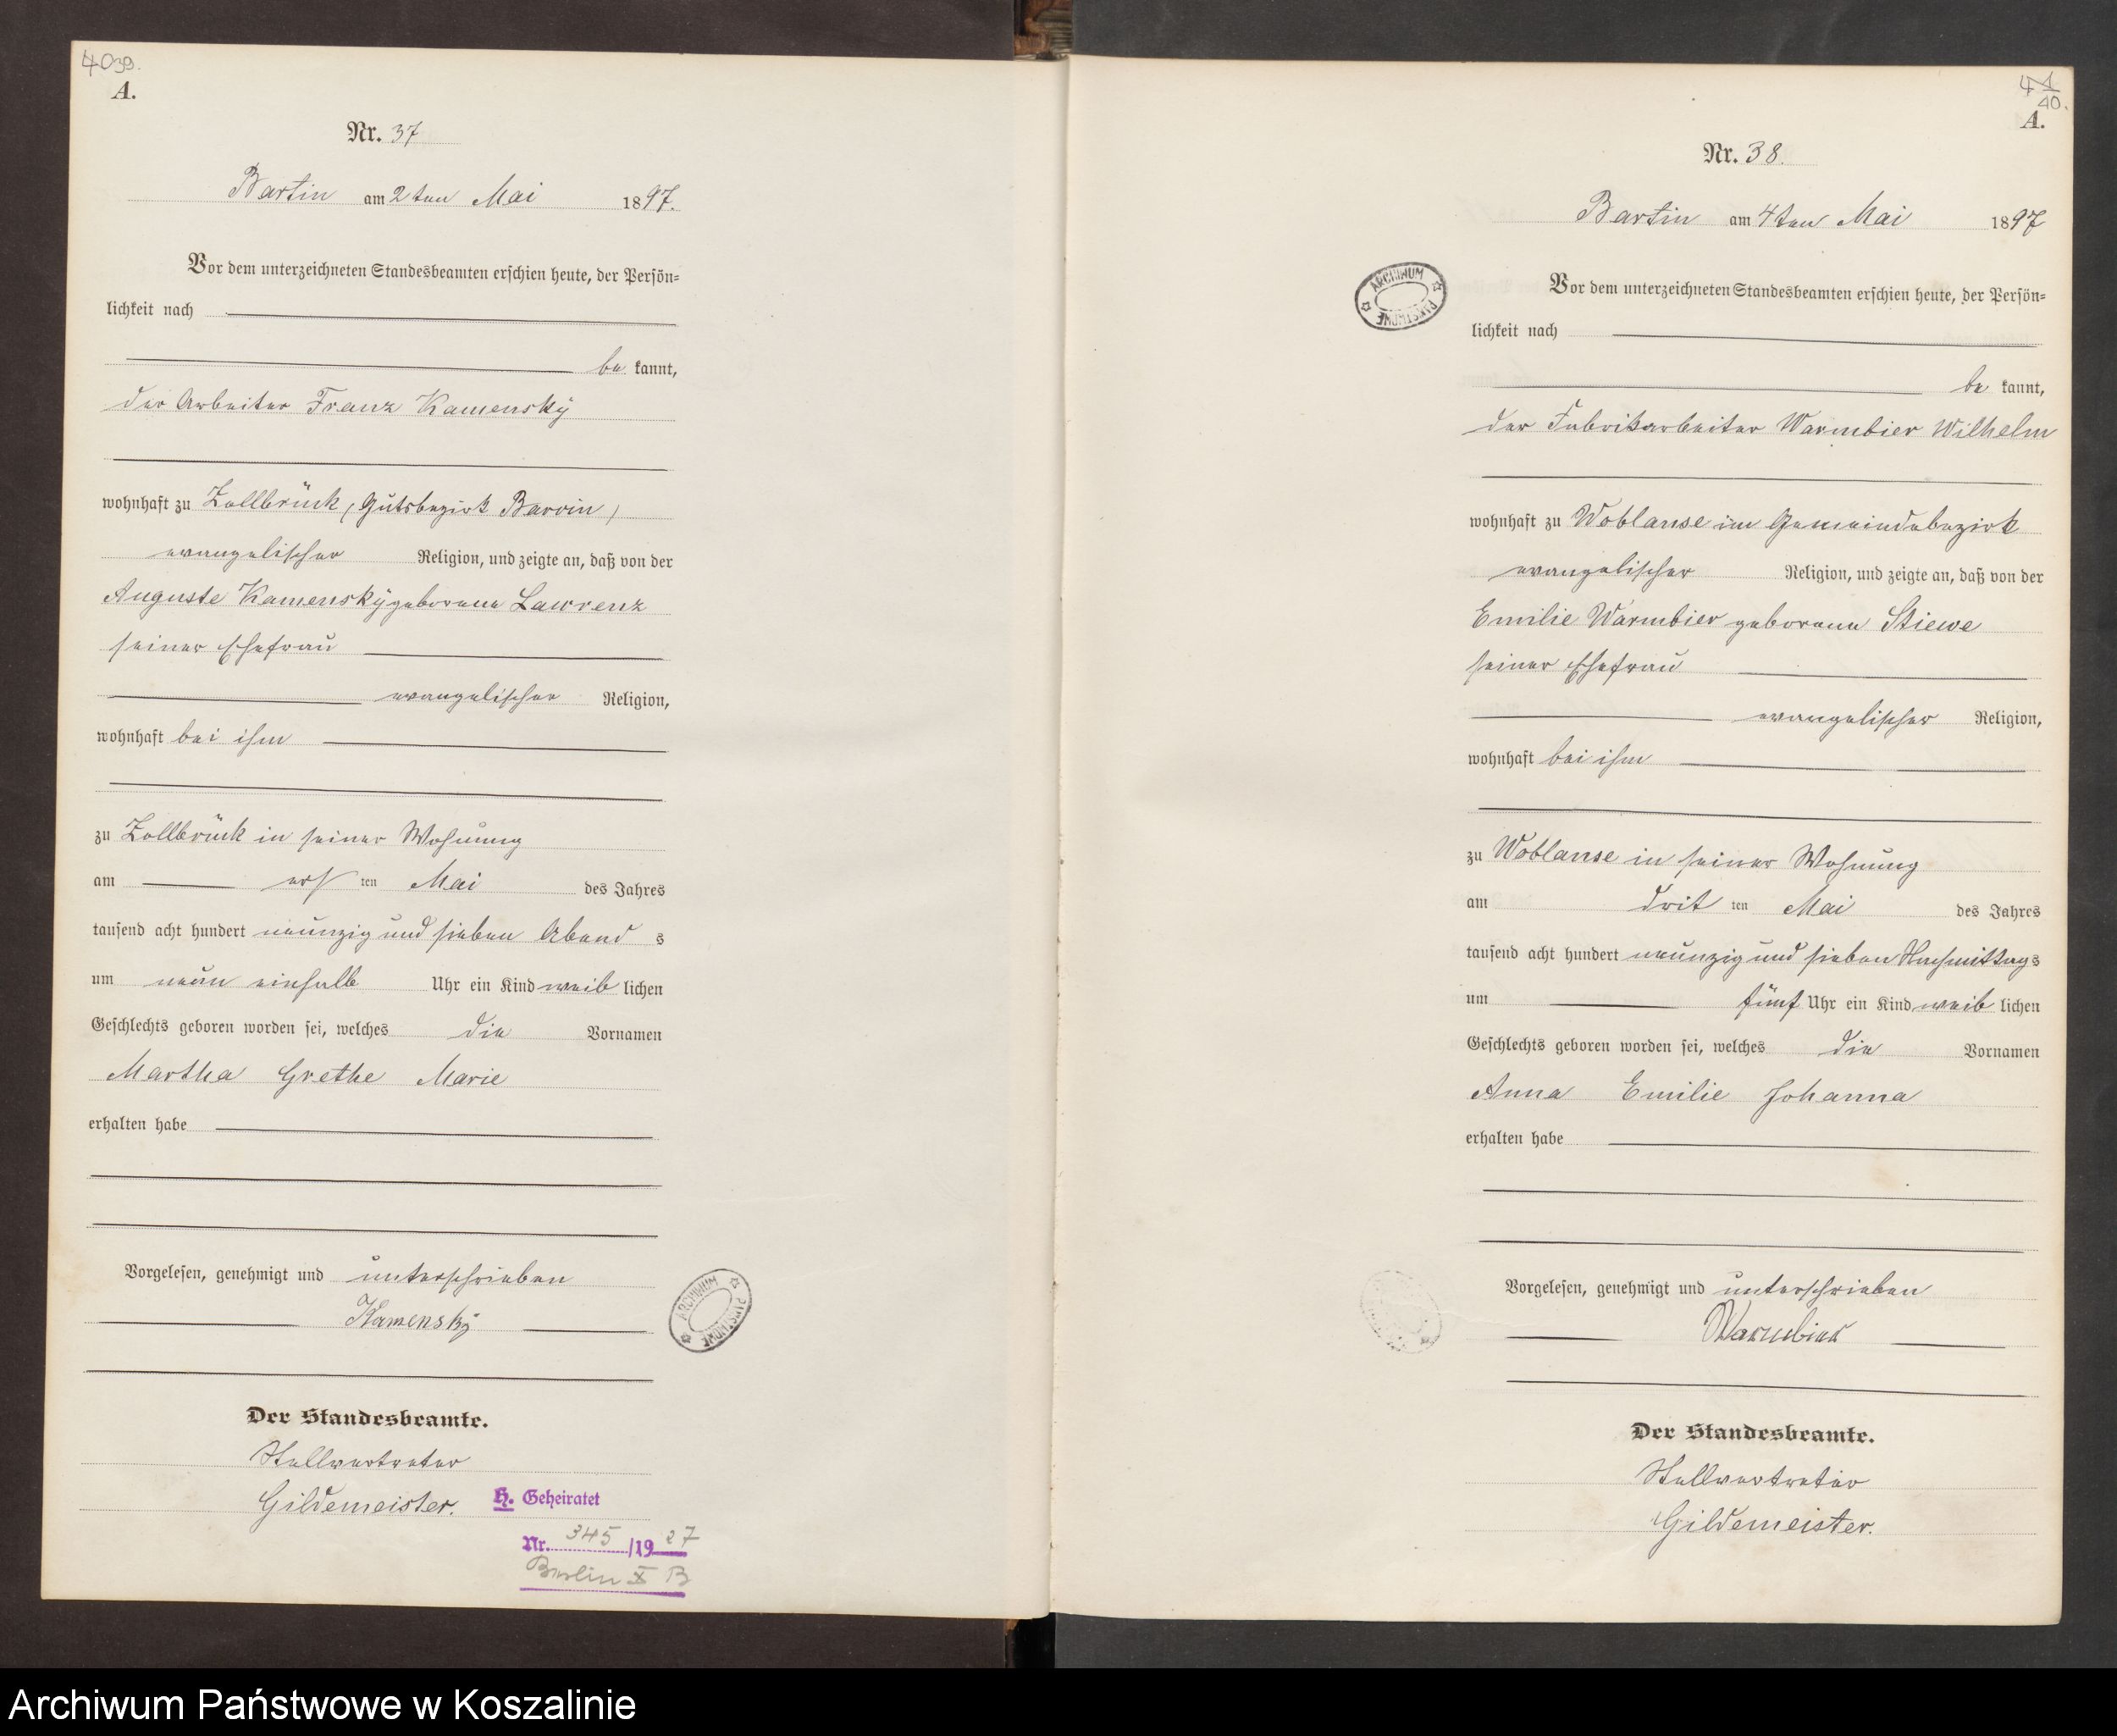 4039.
A.
Nr. 37
Bartin am 2ten Mai 1897.
Vor dem unterzeichneten Standesbeamten erschien heute, der Persön=
lichkeit nach
be kannt,
der Arbeiter Franz Kamensky
wohnhaft zu Zollbrück (Gutsbezirk Barvin)
evangelischer Religion, und zeigte an, daß von der
Auguste Kamensky geborene Lawrenz
seiner Ehefrau
evangelischer Religion,
wohnhaft bei ihm
zu Zollbrück in seiner Wohnung
am erst ten Mai des Jahres
tausend acht hundert neunzig und sieben Abend s
um neun einhalb Uhr ein Kind weib lichen
Geschlechts geboren worden sei, welches die Vornamen
Martha Grethe Marie
erhalten habe
Vorgelesen, genehmigt und unterschrieben
Kamensky
ARCHIWUM PAŃSTWOWE
Der Standesbeamte.
Stellvertreter
Gildemeister.
H. Geheiratet
Nr. 345/1927
Berlin X B
40.
A.
Nr. 38.
Bartin am 4ten Mai 1897
ARCHIWUM PAŃSTWOWE
Vor dem unterzeichneten Standesbeamten erschien heute, der Persön=
lichkeit nach
be kannt,
der Fabrikarbeiter Warmbier Wilhelm
wohnhaft zu Woblanse im Gemeindebezirk
evangelischer Religion, und zeigte an, daß von der
Emilie Warmbier geborene Stiewe
seiner Ehefrau
evangelischer Religion,
wohnhaft bei ihm
zu Woblanse in seiner Wohnung
am drit ten Mai des Jahres
tausend acht hundert neunzig und sieben Nachmittags
um fünf Uhr ein Kind weib lichen
Geschlechts geboren worden sei, welches die Vornamen
Anna Emilie Johanna
erhalten habe
Vorgelesen, genehmigt und unterschrieben
Warmbier
Der Standesbeamte.
Stellvertreter
Gildemeister.
Archiwum Państwowe w Koszalinie